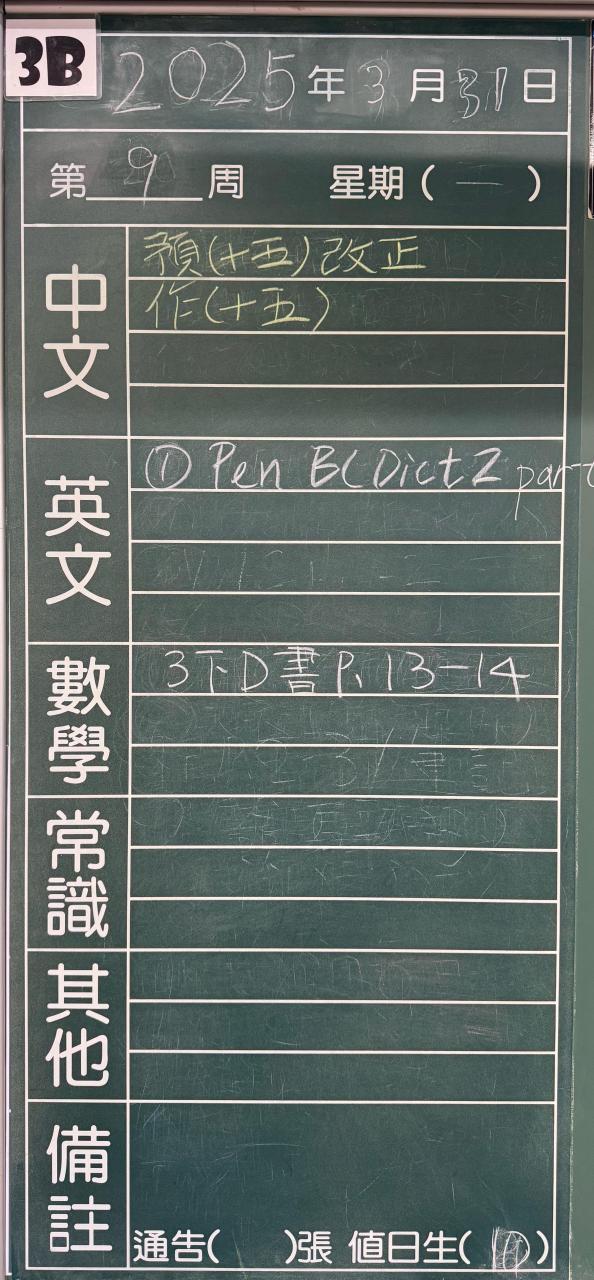 3B
2025年3月31日
第9周 星期(一)
中文
預(十五)改正
作(十五)
英文
① Pen B( Dict 2 part
數學
3下D書 P. 13-14
常識
其他
備註
通告( )張 值日生( )